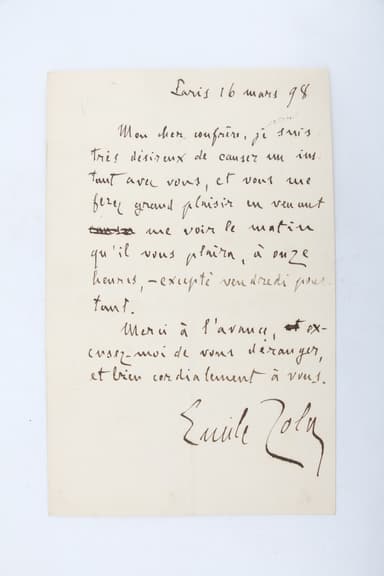 Paris 16 mars 98
Mon cher confrère, je suis
très désireux de causer un ins-
tant avec vous, et vous me
ferez grand plaisir en venant
me voir le matin
qu'il vous plaira, à onze
heures, – excepté vendredi pour-
tant.
Merci à l'avance, et ex-
cusez-moi de vous déranger,
et bien cordialement à vous.
Emile Zola